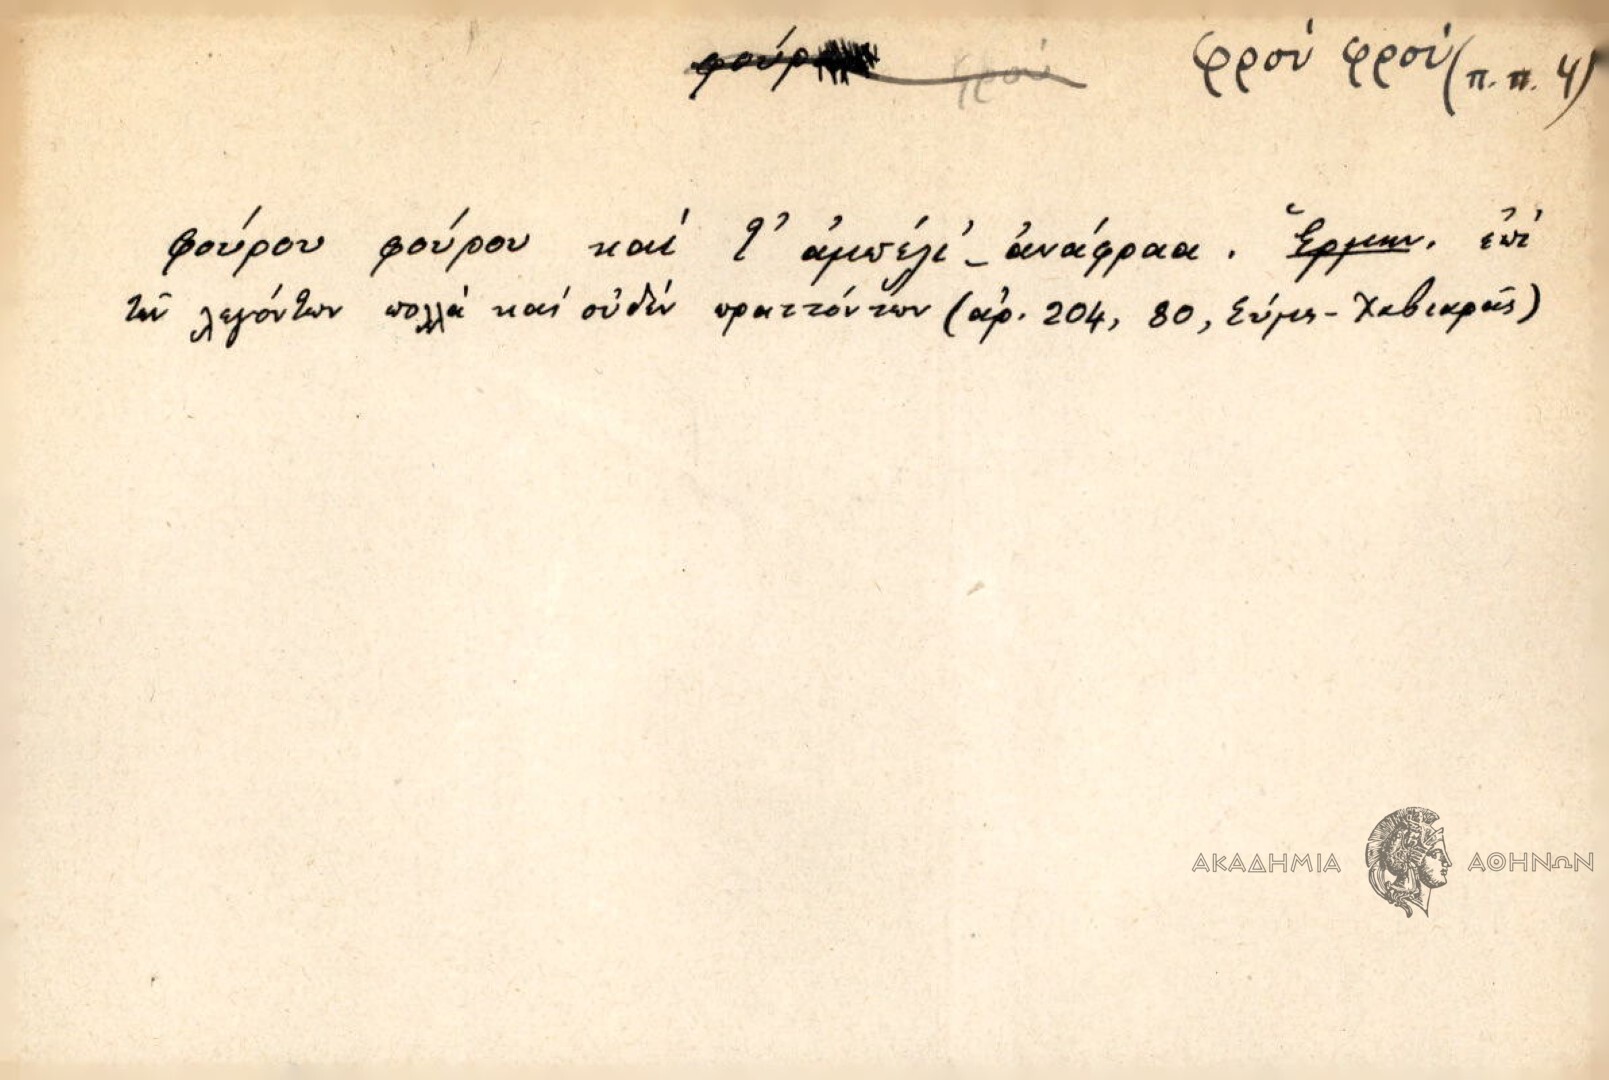 φρού φρού (π.π. 4)
φούρου φούρου καί τ' ἀμπέλι' ἀνάφραα. Ἑρμην. ἐπί
τῶν λεγόντων πολλά καί οὐδέν πραττόντων (ἀρ. 204, 80, Σύμη - Χαβιαρᾶς)
ΑΚΑΔΗΜΙΑ ΑΘΗΝΩΝ